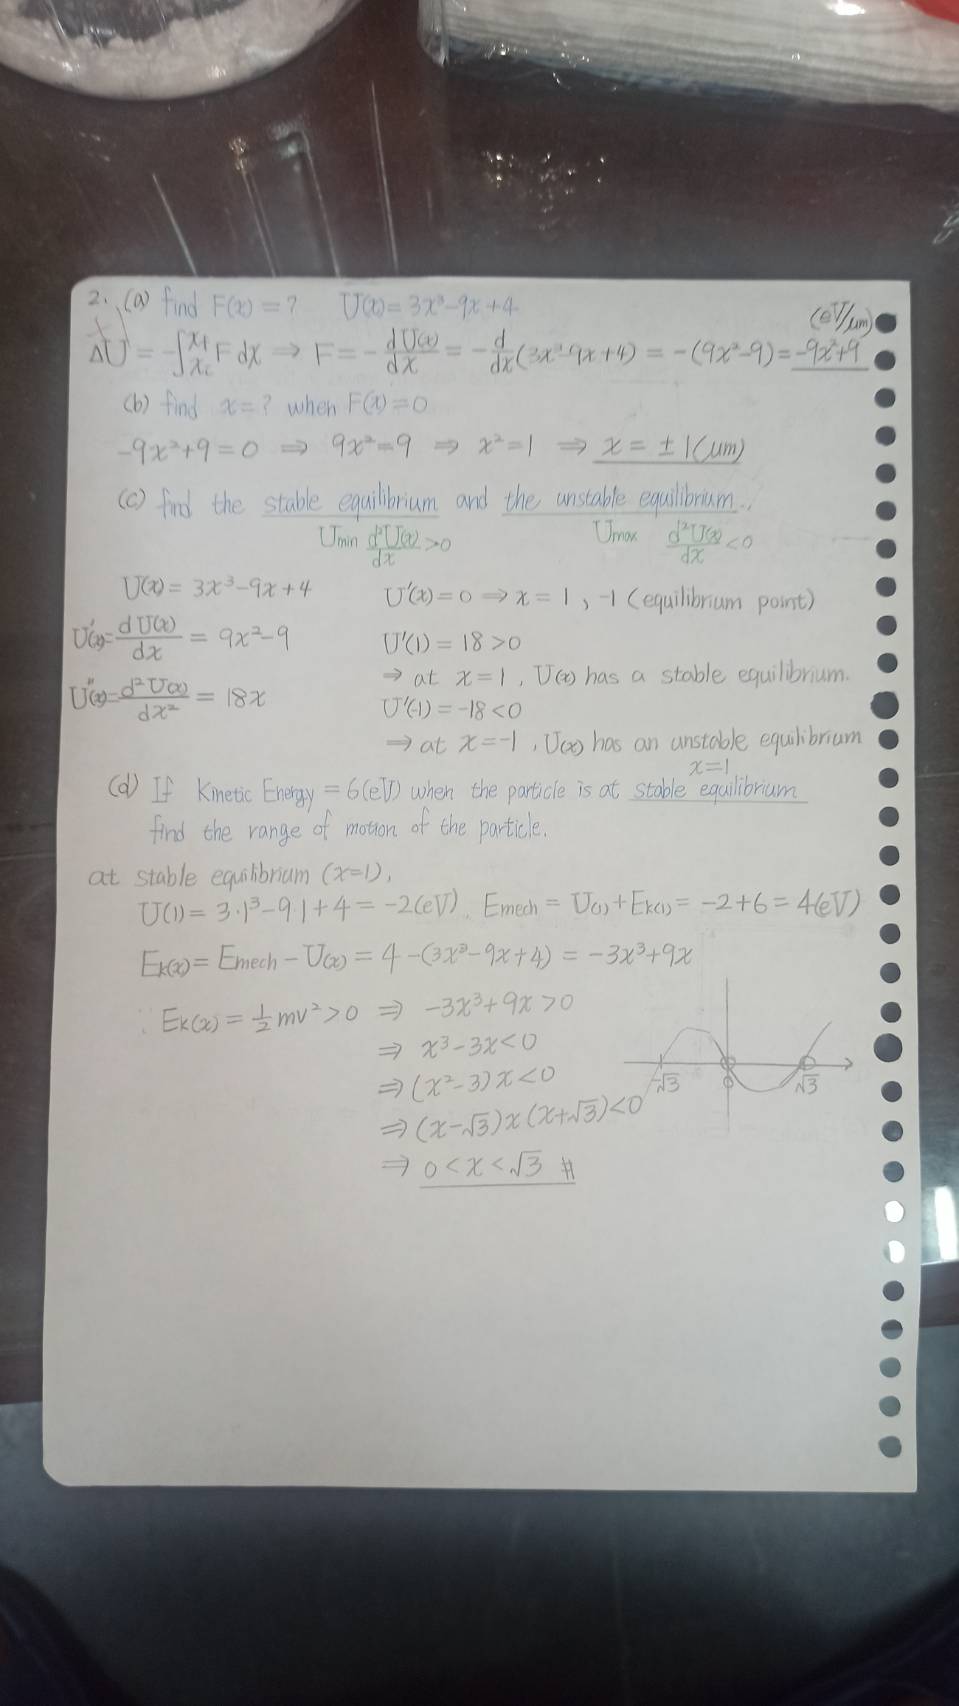 2. (a) find F(x) = ? U(x) = 3x³-9x+4
(eV/μm)
ΔU = -∫ F dx ⇒ F = - dU(x)/dx = - d/dx (3x³-9x+4) = -(9x²-9) = -9x²+9
(b) find x = ? when F(x) = 0
-9x²+9 = 0 ⇒ 9x² = 9 ⇒ x² = 1 ⇒ x = ± 1 (μm)
(c) find the stable equilibrium and the unstable equilibrium.
Umin d²U(x)/dx > 0 Umax d²U(x)/dx < 0
U(x) = 3x³-9x+4
U'(x) = 0 ⇒ x = 1, -1 (equilibrium point)
U'(x) = dU(x)/dx = 9x²-9
U'(1) = 18 > 0
⇒ at x = 1, U(x) has a stable equilibrium.
U''(x) = d²U(x)/dx² = 18x
U'(-1) = -18 < 0
⇒ at x = -1, U(x) has an unstable equilibrium
x=1
(d) If Kinetic Energy = 6(eV) when the particle is at stable equilibrium
find the range of motion of the particle.
at stable equilibrium (x=1),
U(1) = 3·1³-9·1+4 = -2(eV), Emech = U(1)+Ek(1) = -2+6 = 4(eV)
Ek(x) = Emech - U(x) = 4-(3x³-9x+4) = -3x³+9x
∵ Ek(x) = 1/2 mv² > 0 ⇒ -3x³+9x > 0
⇒ x³-3x < 0
⇒ (x²-3)x < 0
⇒ (x-√3)x(x+√3) < 0
⇒ 0 < x < √3 #
-√3 0 √3